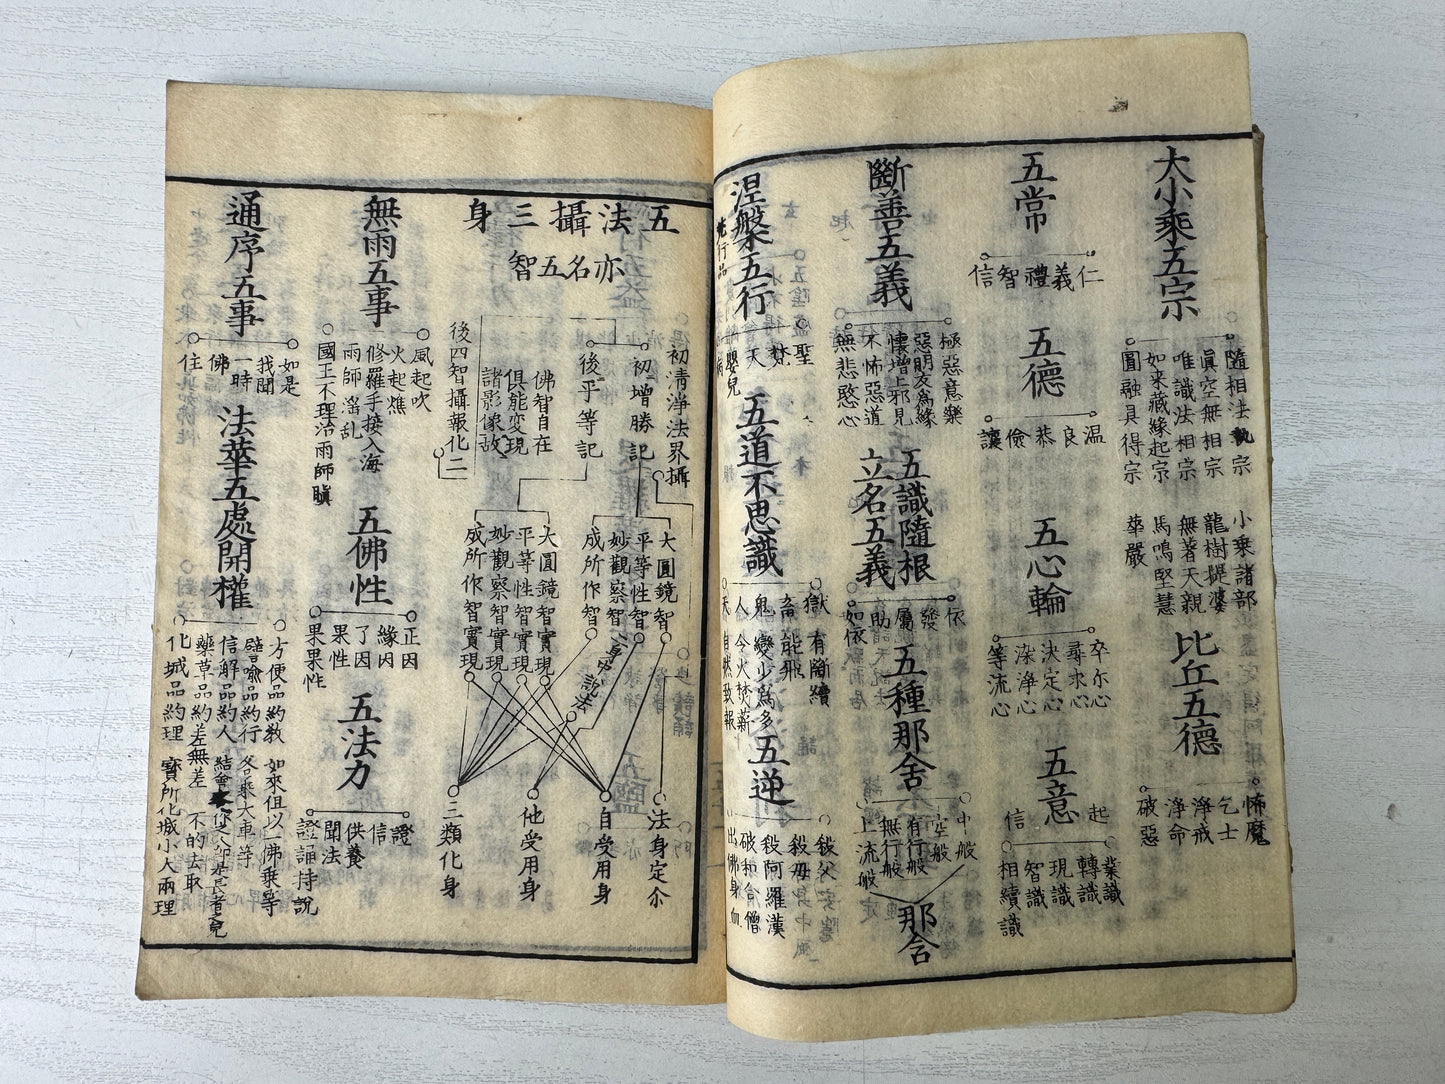 大小乘五宗
隨相法執宗 小乘諸部
眞空無相宗 龍樹提婆
唯識法相宗 無著天親
如来藏緣起宗 馬鳴堅慧
圓融具得宗 華嚴
比丘五德
怖魔
乞士
淨戒
淨命
破惡
五常
仁
義
禮
智
信
五德
温
良
恭
儉
讓
五心輪
卒尓心
尋求心
决定心
染淨心
等流心
五意
起信
業識
轉識
現識
智識
相續識
斷善五義
極惡意樂
惡朋友為緣
懷增上邪見
不怖惡道
無悲愍心
五識隨根
立名五義
依
發
屬
助
如依
五種那舍
中般
空般
有行般
無行般
上流般
那含
涅槃五行
聖
梵
天
嬰兒
病
五道不思議
獄 有斷續
畜 能飛
鬼 變少爲多
人 今火焚薪
天 自然致報
五逆
殺父
殺母
殺阿羅漢
破和合僧
出佛身血
五法攝三身
亦名五智
初清淨法界攝
初增勝記
後平等記
佛智自在
俱能变現
諸影像故
後四智攝報化二
大圓鏡智
平等性智
妙觀察智
成所作智
二身中說法
大圓鏡智實現
平等性智實現
妙觀察智實現
成所作智實現
法身定尒
自受用身
他受用身
三類化身
無雨五事
風起吹
火起燋
修羅手接入海
雨師滛乱
國王不理治雨師瞋
五佛性
正因
緣因
了因
果性
果果性
五法力
證
信
供養
聞法
證誦持說
通序五事
如是
我聞
一時
佛
住
法華五處開權
方便品約教 如來但以一佛乘等
譬喻品約行 各乘大車等
信解品約人
藥草品約差無差 不的去取
化城品約理 寶所化城小大兩理